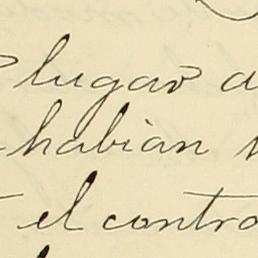 lugar
habian
el contro